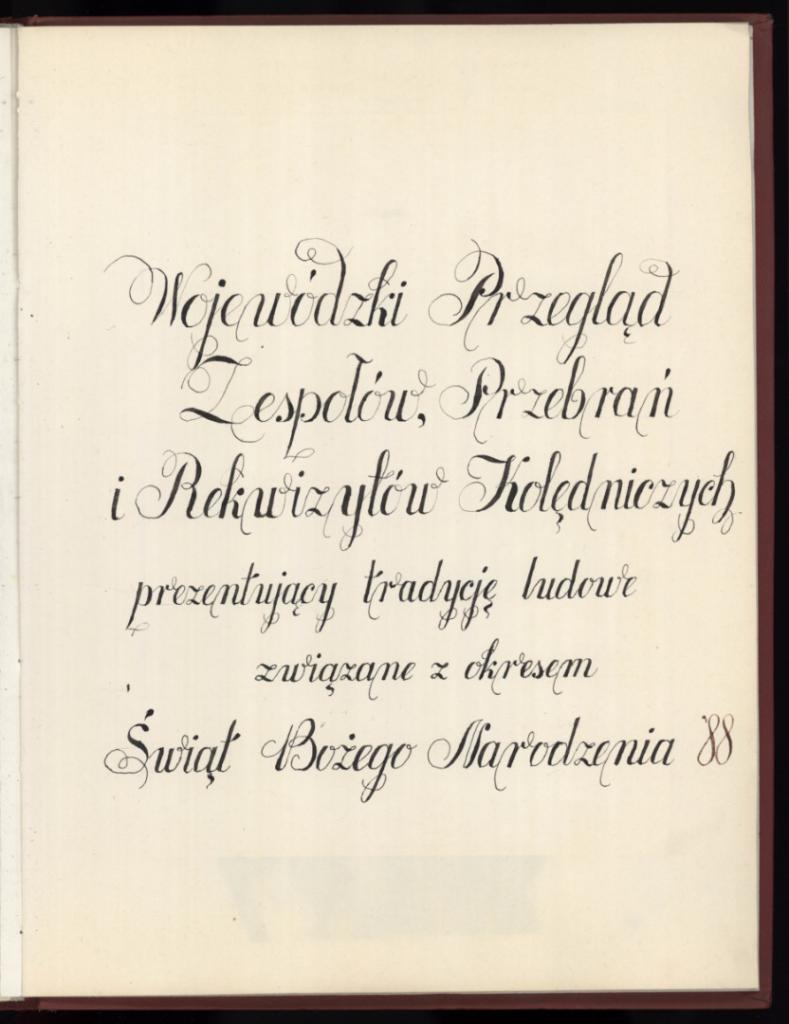 Wojewódzki Przegląd
Zespołów, Przebrań
i Rekwizytów Kolędniczych
prezentujący tradycję ludowe
związane z okresem
Świąt Bożego Narodzenia '88